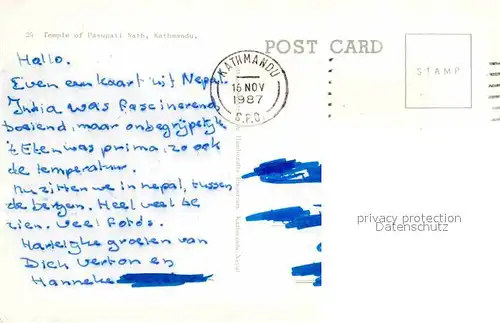 24 Temple of Pasupati Nath, Kathmandu.
POST CARD
STAMP
KATHMANDU
16 NOV
1987
G.P.O.
Hallo.
Even een kaart uit Nepal.
India was fascinerend,
boeiend, maar onbegrijpelijk
't Eten was prima, zo ook
de temperatuur.
Nu zitten we in nepal, tussen
de bergen. Heel veel te
zien. veel foto's.
Hartelijke groeten van
Dick Verton en
Hanneke
privacy protection
Datenschutz